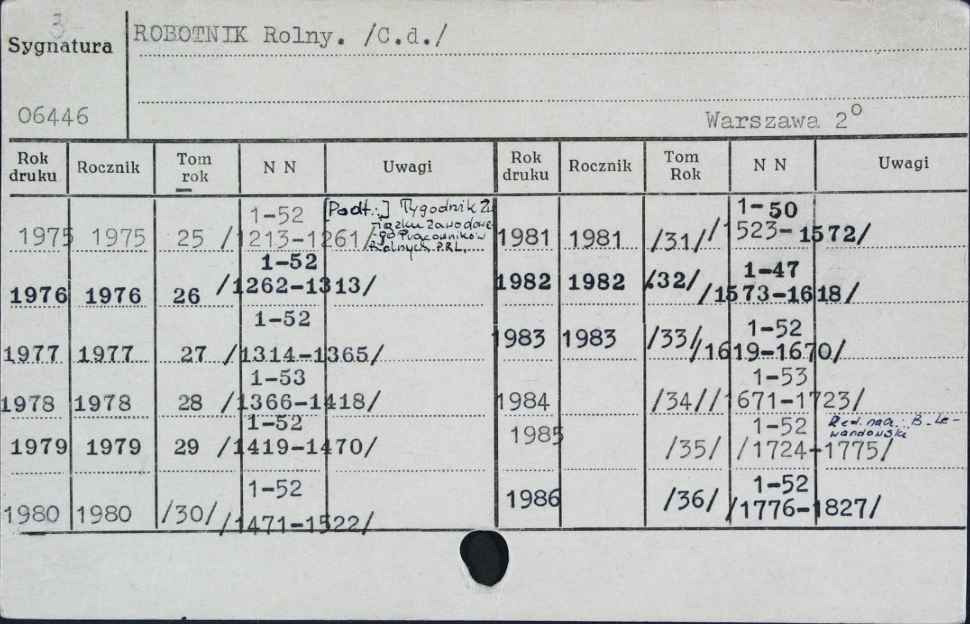 3
Sygnatura
06446
ROBOTNIK Rolny. /C.d./
Warszawa 2°
Rok druku Rocznik Tom rok N N Uwagi Rok druku Rocznik Tom Rok N N Uwagi
1975 1975 25 1-52 /1213-1261/ [Podt.:] Tygodnik Związku Zawodowego Pracowników Rolnych PRL.
1976 1976 26 1-52 /1262-1313/
1977 1977 27 1-52 /1314-1365/
1978 1978 28 1-53 /1366-1418/
1979 1979 29 1-52 /1419-1470/
1980 1980 /30/ 1-52 /1471-1522/
1981 1981 /31/ 1-50 /1523-1572/
1982 1982 /32/ 1-47 /1573-1618/
1983 1983 /33/ 1-52 /1619-1670/
1984 /34/ 1-53 /1671-1723/
1985 /35/ 1-52 /1724-1775/ Red. nacz.: B. Lewandowski
1986 /36/ 1-52 /1776-1827/